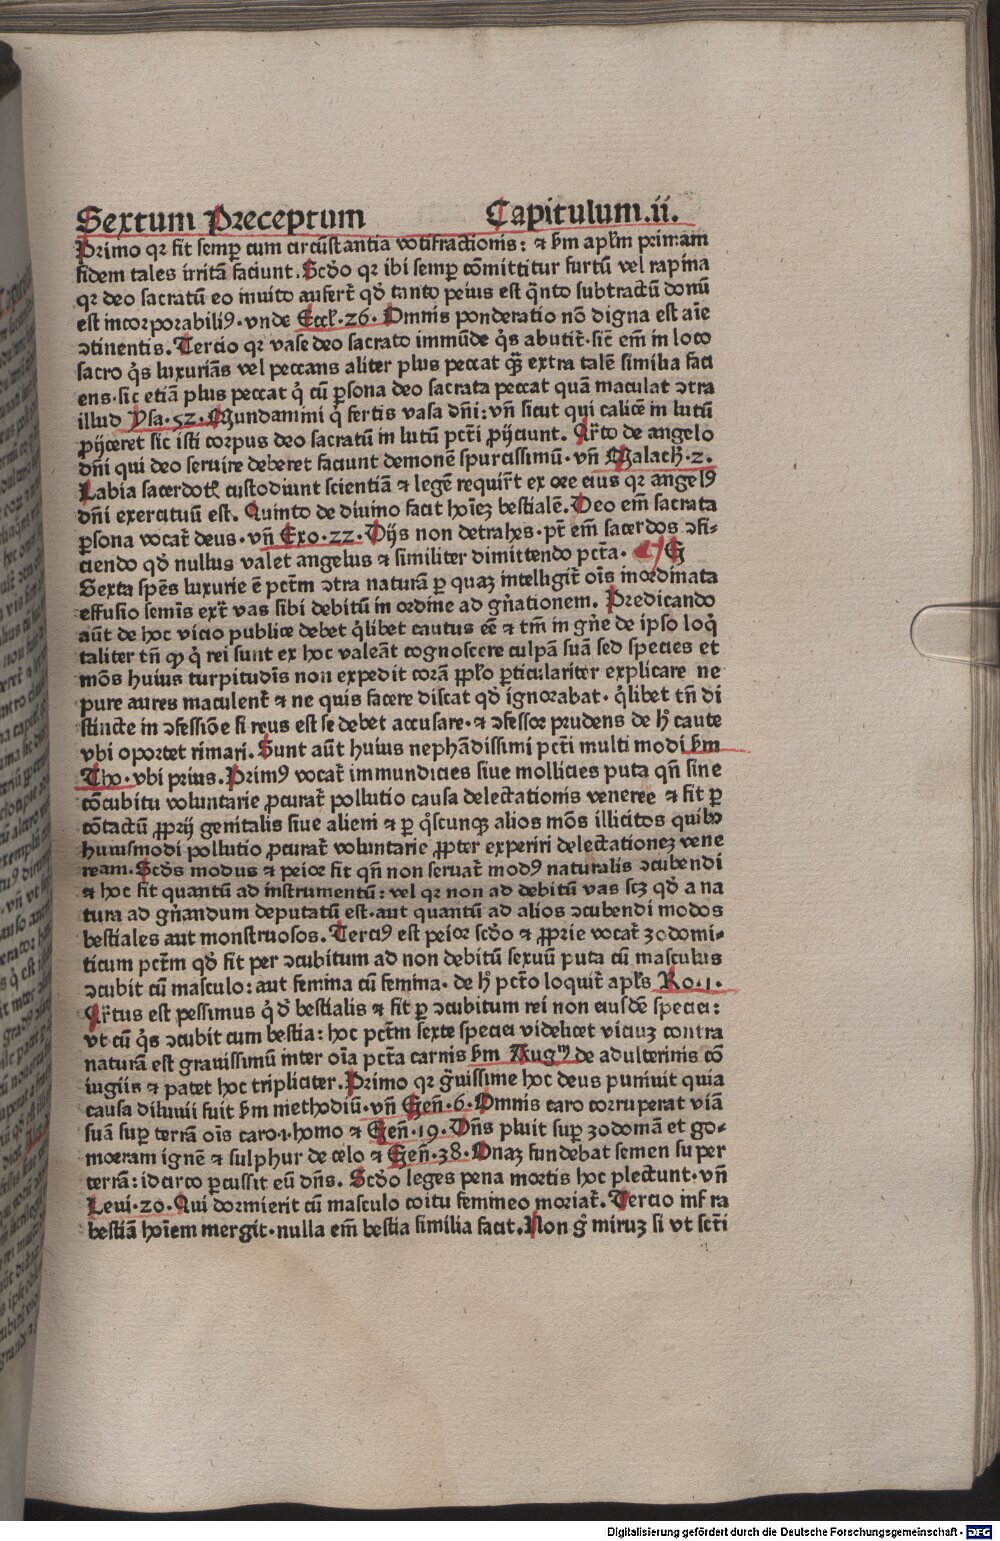 Sextum Preceptum Capitulum.ii.
Primo qꝛ fit semꝑ cum circũstantia votifractionis: ⁊ ẜm apl̃m primam
fidem tales irritã faciunt. Scḋo qꝛ ibi semꝑ cõmittitur furtũ vel rapina
qꝛ deo sacratũ eo inuito aufert᷑ qḋ tanto peius est q̃nto subtractũ donũ
est incorporabiliꝰ. vnde Eccl̃. 26. Omnis ponderatio nõ digna est aĩe
ↄtinentis. Tercio qꝛ vase deo sacrato immũde q̇s abutit᷑. sic̃ em̃ in loco
sacro q̇s luxuriãs vel peccans aliter plus peccat q̃ȝ extra talẽ similia faci
ens. sic etiã plus peccat q̇ cũ ꝑsona deo sacrata peccat quã maculat ↄtra
illud Ysa. 52. Mundamini q̇ fertis vasa dñi: vñ sicut qui calicẽ in lutũ
ꝓijceret sic isti corpus deo sacratũ in lutũ pct̃i ꝓijciunt. Qr̃to de angelo
dñi qui deo seruire deberet faciunt demonẽ spurcissimũ. vñ Malach̃. 2.
Labia sacerdotꝭ custodiunt scientiã ⁊ legẽ requir̃t ex ore eius qꝛ angelꝰ
dñi exercituũ est. Quinto de diuino facit hoĩeȝ bestialẽ. Deo em̃ sacrata
ꝑsona vocat᷑ deus. vñ Exo. 22. Dijs non detrahes. pt̃ em̃ sacerdos ↄfi-
ciendo qḋ nullus valet angelus ⁊ similiter dimittendo pct̃a. G
Sexta spẽs luxurie ẽ pct̃m ↄtra naturã ꝑ quaȝ intelligit᷑ oĩs inordinata
effusio semĩs ext᷑ vas sibi debitũ in ordine ad gñationem. Predicando
aũt de hoc vicio publice debet q̇libet cautus eẽ ⁊ tm̃ in gñe de ipso loq̇
taliter tñ ꝙ q̇ rei sunt ex hoc valeãt cognoscere culpã suã sed species et
mõs huius turpitudĩs non expedit corã ꝓpl̃o ꝑticulariter explicare ne
pure aures maculent᷑ ⁊ ne quis facere discat qḋ ignorabat. q̇libet tñ di
stincte in ↄfessiõe si reus est se debet accusare. ⁊ ↄfessor prudens de hꝭ caute
vbi oportet rimari. Sunt aũt huius nephãdissimi pct̃i multi modi ẜm
Tho. vbi prius. Primꝰ vocat᷑ immundicies siue mollicies puta qñ sine
cõcubitu voluntarie ꝓcurat᷑ pollutio causa delectationis veneree ⁊ fit ꝑ
cõtactũ ꝓprij genitalis siue alieni ⁊ ꝑ q̇scunqȝ alios mõs illicitos quibꝰ
huiusmodi pollutio ꝓcurat᷑ voluntarie ꝓpter experiri delectationeȝ vene
ream. Scḋs modus ⁊ peior fit qñ non seruat᷑ modꝰ naturalis ↄcubendi
⁊ hoc fit quantũ ad instrumentũ: vel qꝛ non ad debitũ vas scȝ qḋ a na
tura ad gñandum deputatũ est. aut quantũ ad alios ↄcubendi modos
bestiales aut monstruosos. Terciꝰ est peior scḋo ⁊ ꝓprie vocat᷑ zodomi-
ticum pct̃m qḋ fit per ↄcubitum ad non debitũ sexuũ puta cũ masculus
ↄcubit cũ masculo: aut femina cũ femina. de hꝭ pct̃o loquit᷑ apl̃s Ro. 1.
Qr̃tus est pessimus q̇ ḋ bestialis ⁊ fit ꝑ ↄcubitum rei non eiusdẽ speciei:
vt cũ q̇s ↄcubit cum bestia: hoc pct̃m sexte speciei videlicet viciuȝ contra
naturã est grauissimũ inter oĩa pct̃a carnis ẜm Augᷤ de adulterinis cõ
iugiis ⁊ patet hoc tripliciter. Primo qꝛ g̃uissime hoc deus puniuit quia
causa diluuii fuit ẜm methodiũ. vñ Geñ. 6. Omnis caro corruperat viã
suã suꝑ terrã oĩs caro .i. homo ⁊ Geñ. 19. Dñs pluit suꝑ zodomã et go-
morram ignẽ ⁊ sulphur de celo ⁊ Geñ. 38. Onaȝ fundebat semen super
terrã: idcirco ꝑcussit eũ dñs. Scḋo leges pena mortis hoc plectunt. vñ
Leui. 20. Qui dormierit cũ masculo coitu femineo moriat᷑. Tercio infra
bestiã hoĩem mergit. nulla em̃ bestia similia facit. Non g̊ miruȝ si vt sct̃i
Digitalisierung gefördert durch die Deutsche Forschungsgemeinschaft - DFG